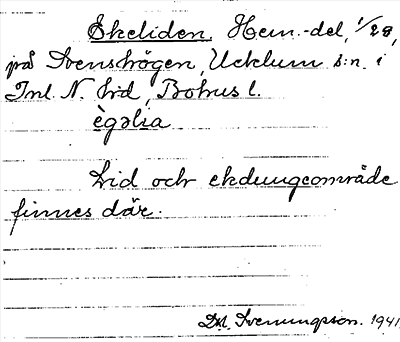 Ekeliden, Hem.-del, 1/28,
på Svenshögen, Ucklum s:n i
Inl. N. hd, Bohus l.
ègəlia
Lid och ekdungeområde
finnes där.
D. Svenungsson. 1941